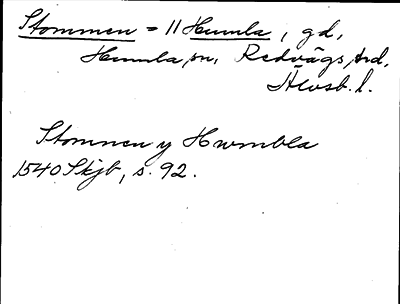 Stommen = 11 Humla, gd,
Humla sn, Redvägs hd,
Älvsb. l.
Stommen y Hwmbla
1540 Skjb, s. 92.